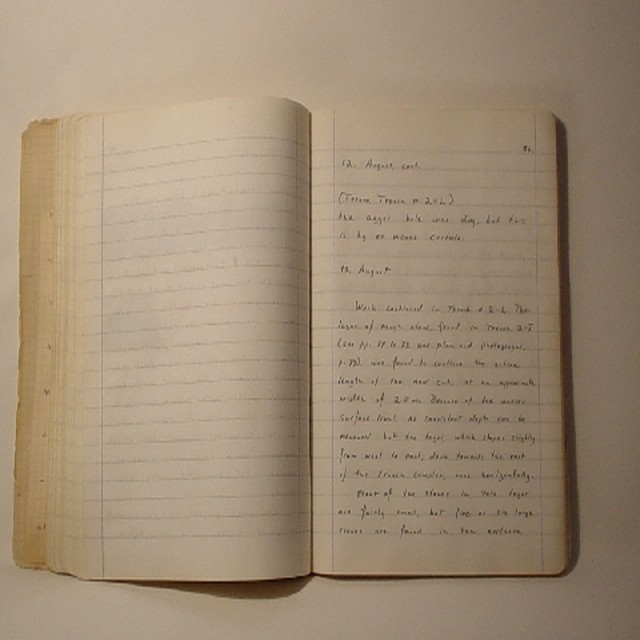 86.
12. August, cont.
(Terrace Trench # 2-L)
the auger hole was dug, but this
is by no means certain.
13. August
Work continued in Trench # 2-L. The
layer of rough stone, found in Trench 2-I
(see pp. to and plan and photograph,
p. ), was found to continue the entire
length of the new cut, at an approximate
width of 2.0 m. Because of the uneven
surface level, no consistent depth can be
measured, but the layer, which slopes slightly
from west to east, down towards the rest
of the Trench complex, runs horizontally.
Most of the stones in this layer
are fairly small, but five or six large
stones are found in the